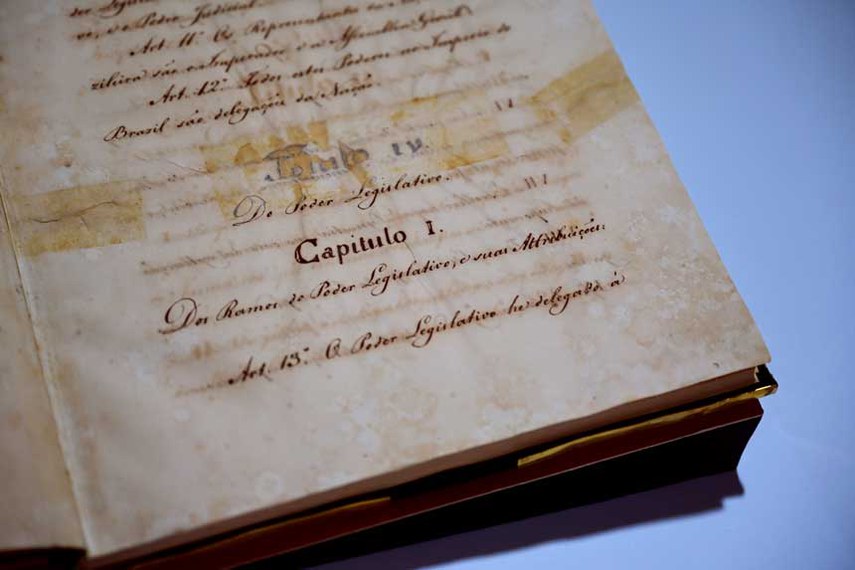 der Legis
vo, e o Poder Judicial.
Art. 11.º Os Representantes da
zileira são o Imperador, e a Assembléa Geral.
Art. 12.º Todos estes Poderes no Imperio do
Brazil são delegações da Nação.
Titulo IV.
Do Poder Legislativo.
Capitulo I.
Dos Ramos do Poder Legislativo, e suas Attribuições.
Art. 13.º O Poder Legislativo he delegado á